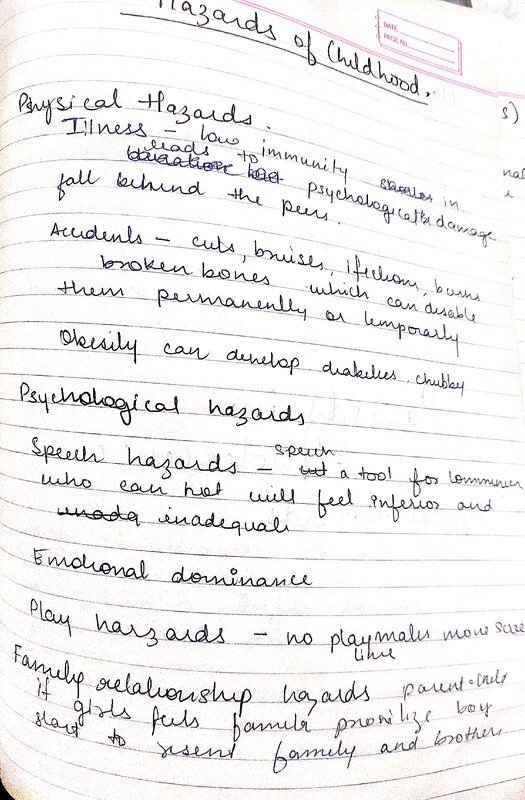 Hazards of Childhood.
DATE
PAGE No.
s)
Physical Hazards.
Illness – low immunity in
leads to
psychological damage
fall behind the peers.
Accidents – cuts, bruises, ifections, burns
broken bones which can disable
them permanently or temporarly
Obesity can develop diabeties, chubby
Psychological hazards
speech
Speech hazards – a tool for
who can not will feel inferior and
inadequate
Emotional dominance
Play harzards – no playmates more scree
time
Family relationship hazards parent-child
if girls feels family prioritize boy
start to resent family and brothers